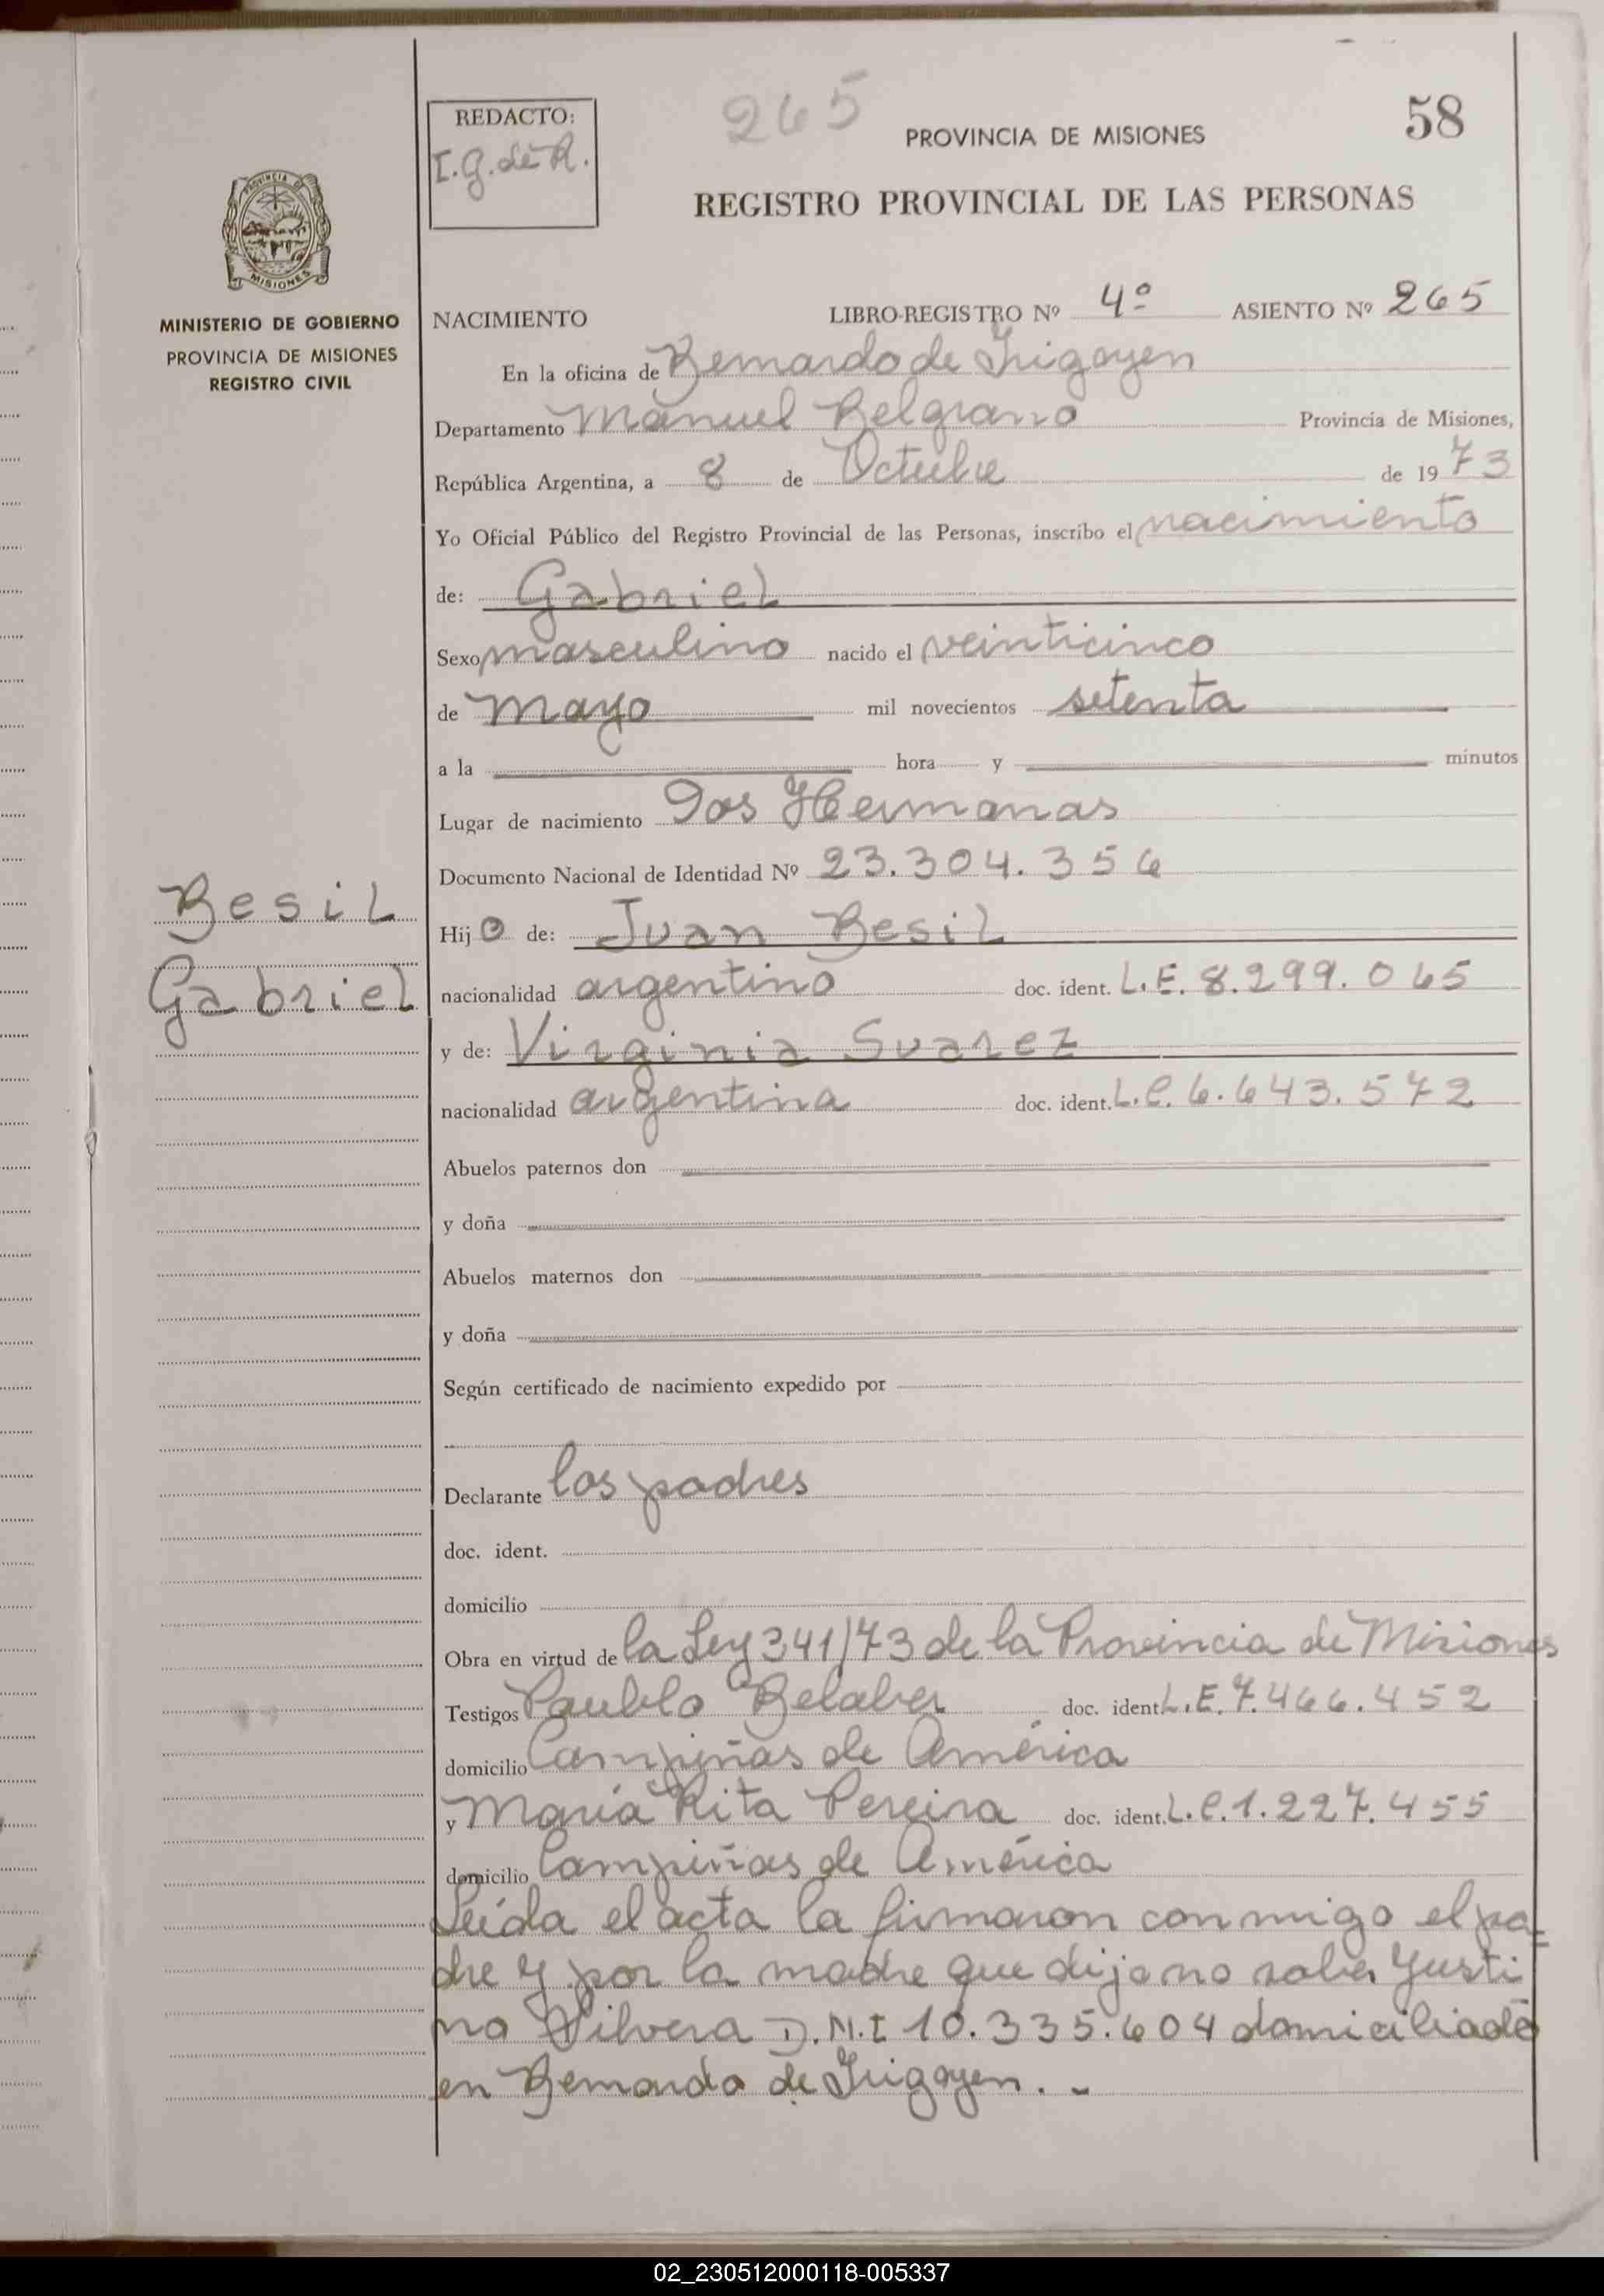 REDACTO:
I. G. de R.
265
58
PROVINCIA DE MISIONES
REGISTRO PROVINCIAL DE LAS PERSONAS
PROVINCIA DE
MISIONES
MINISTERIO DE GOBIERNO
PROVINCIA DE MISIONES
REGISTRO CIVIL
NACIMIENTO LIBRO-REGISTRO Nº 4º ASIENTO Nº 265
En la oficina de Bernardo de Irigoyen
Departamento Manuel Belgrano Provincia de Misiones,
República Argentina, a 8 de Octubre de 1973
Yo Oficial Público del Registro Provincial de las Personas, inscribo el nacimiento
de: Gabriel
Sexo masculino nacido el veinticinco
de mayo mil novecientos setenta
a la hora y minutos
Lugar de nacimiento Dos Hermanas
Documento Nacional de Identidad Nº 23.304.356
Besil
Hijo de: Juan Besil
Gabriel
nacionalidad argentino doc. ident. L.E. 8.299.065
y de: Virginia Suarez
nacionalidad argentina doc. ident. L.C. 6.643.572
Abuelos paternos don
y doña
Abuelos maternos don
y doña
Según certificado de nacimiento expedido por
Declarante los padres
doc. ident.
domicilio
Obra en virtud de la Ley 341/73 de la Provincia de Misiones
Testigos Paublo Belaber doc. ident. L.E. 7.466.452
domicilio Campiñas de América
y María Rita Pereira doc. ident. L.C. 1.227.455
domicilio Campiñas de América
Leída el acta la firmaron conmigo el pa
dre y por la madre que dijo no saber Yusti
no Silvera D.N.I 10.335.604 domiciliado
en Bernardo de Irigoyen. -
02_230512000118-005337